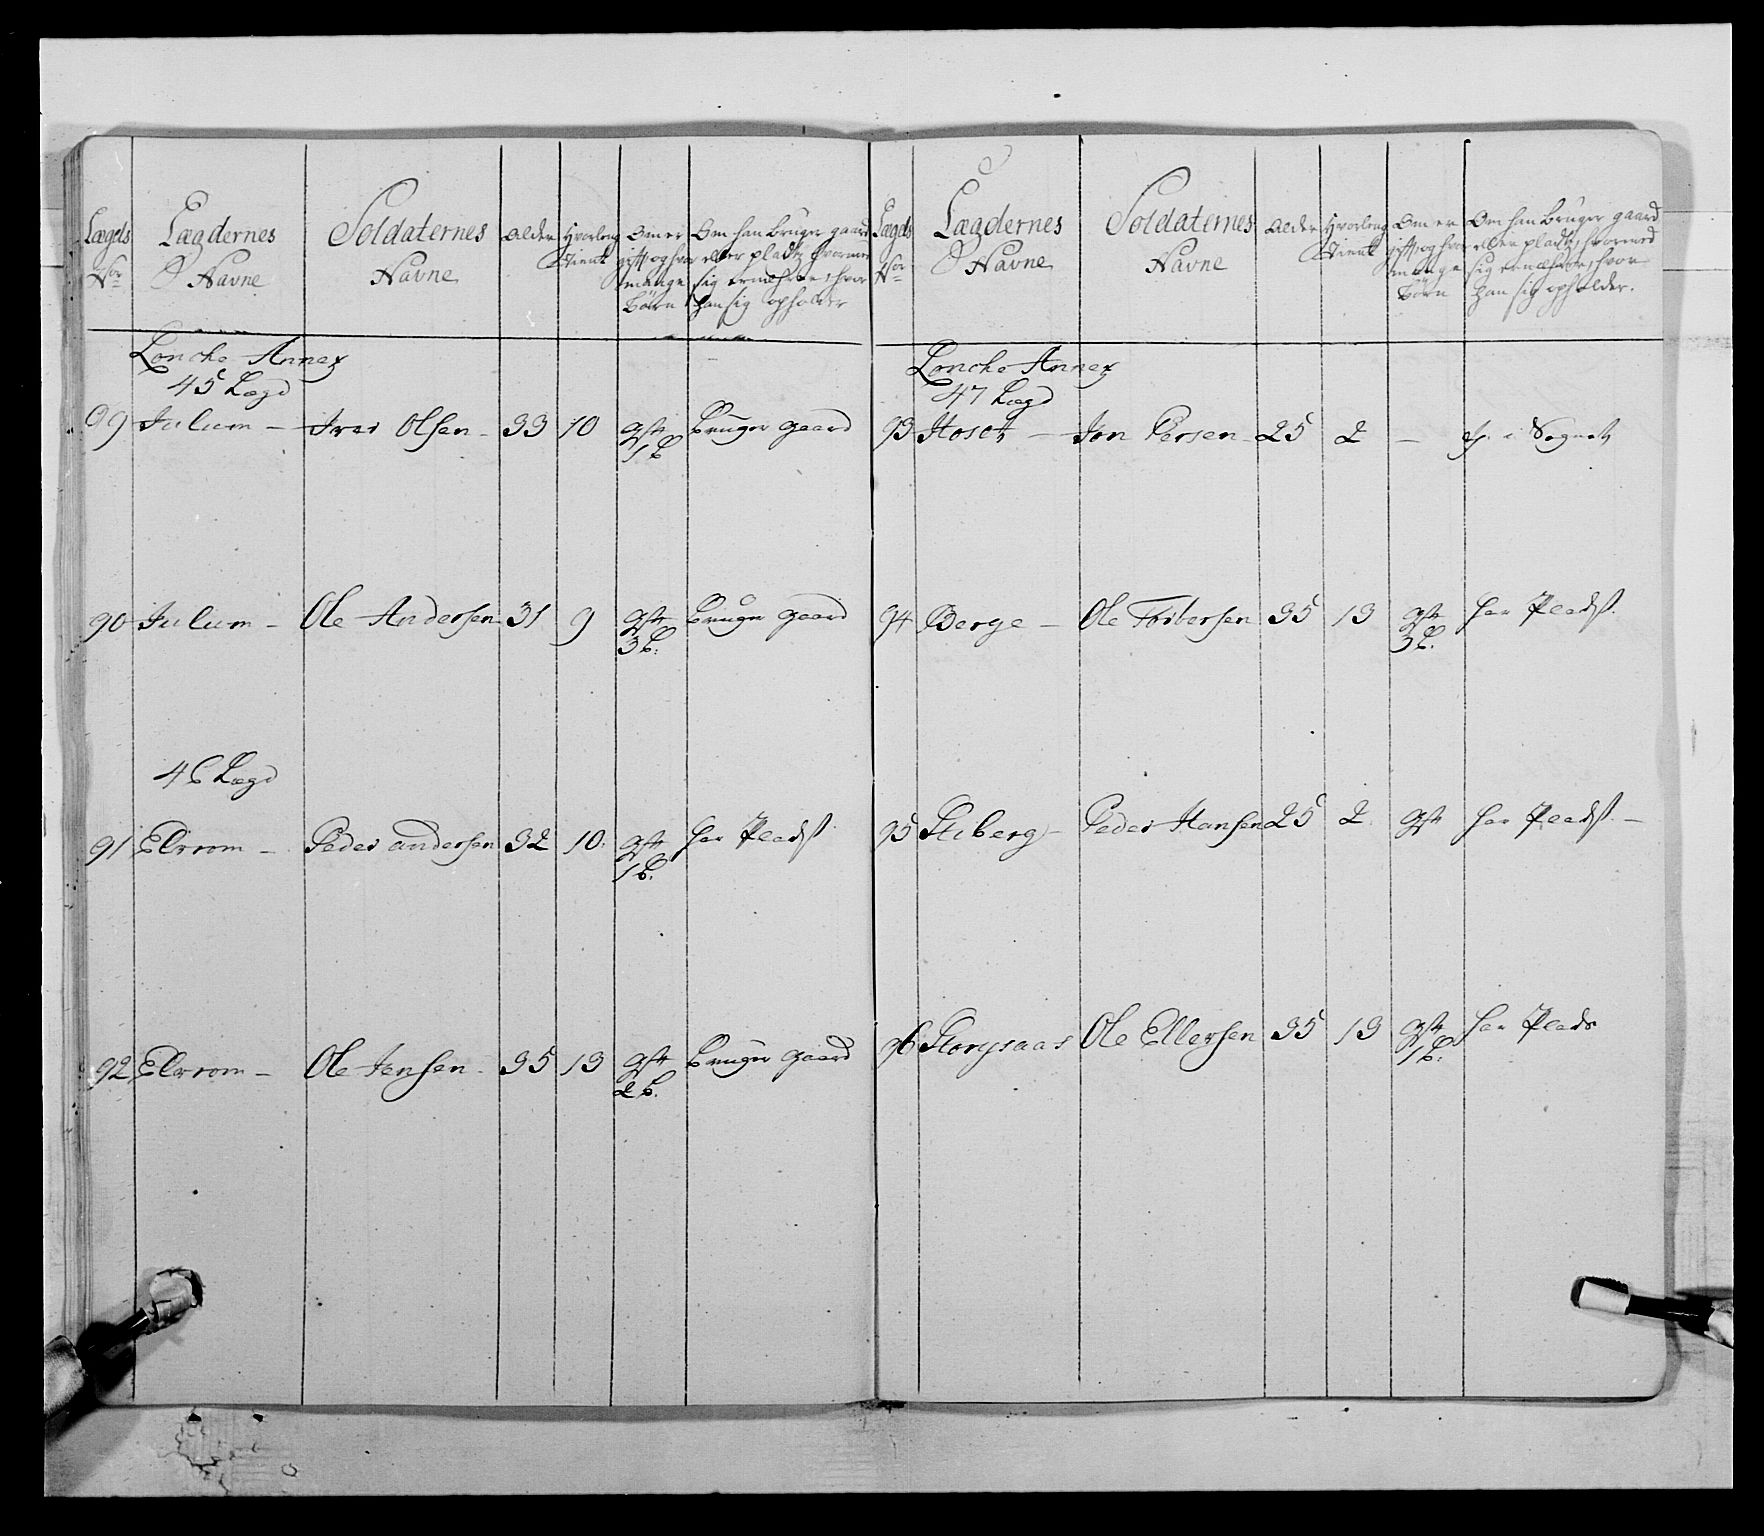 Lægds Nor
Lægdernes Navne
Soldaternes Navne
Alder
Hvorleng Tient
Om er gift, og hvor mange Børn
Om han bruger gaard eller pladtz, hvormed sig ernæhrer, hvor han sig opholder
Loncke Annex
45 Lægd
89 Julum — Iver Olsen — 33 10 gft 1 b. bruger gaard
90 Julum — Ole Andersen 31 9 gft 3 b. bruger gaard
46 Lægd
91 Elvrom — Peder Andersen 32 10. gft 1 b. har Pladst
92 Elvrom — Ole Jensen — 35 13 gft 2 b. bruger gaard
Lægds Nor
Lægdernes Navne
Soldaternes Navne
Alder
Hvorleng Tient
Om er gift, og hvor mange Børn
Om han bruger gaard eller pladtz, hvormed sig ernæhrer, hvor han sig opholder.
Loncke Annex
47 Lægd
93 Hoset — Jon Persen — 25 2 — i Sognet
94 Berge — Ole Torbersen 35 13 gft 3 b. har Pladst.
95 Stuberg — Peder Hansen 25 2 gft har Pladst. —
96 Storysaas Ole Ellersen 35 13 gft 1 b. har Plads